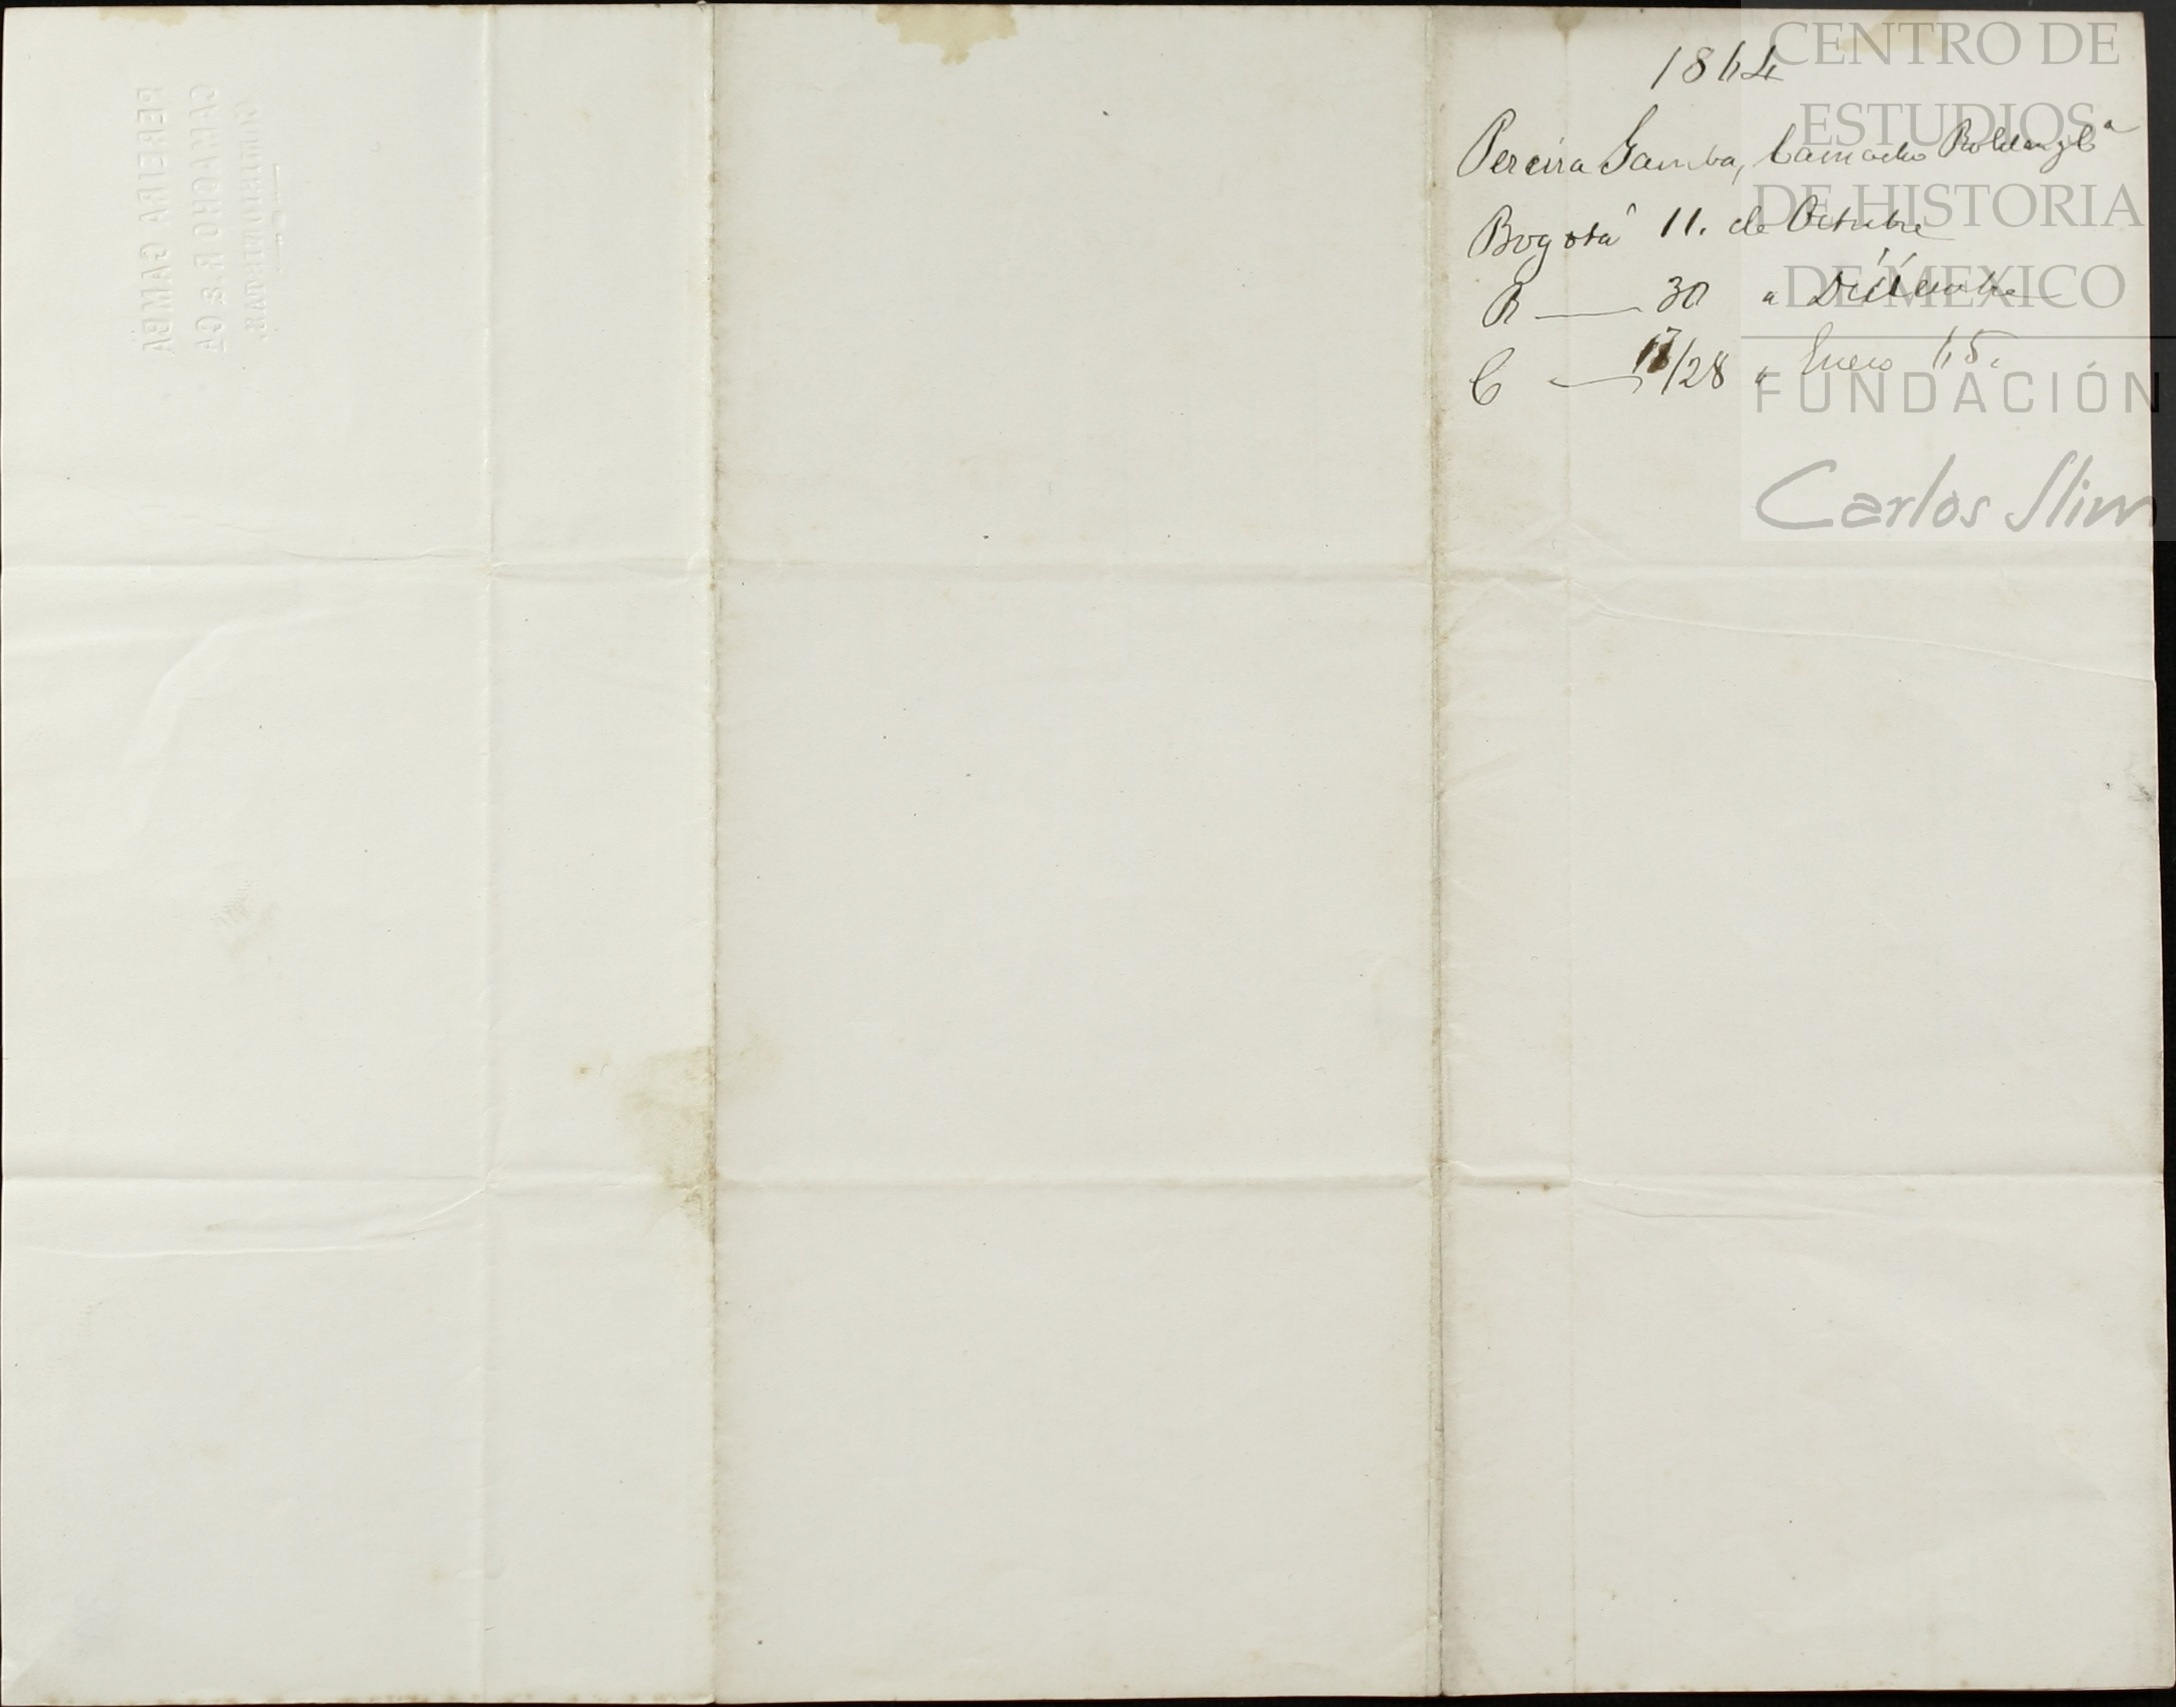 1864
Pereira Gamba, Camacho Roldan y Cª
Bogotá 11. de Octubre
R — 30 " Diciembre
C — /28 " Enero 65.
PEREIRA GAMBA
CAMACHO R. & CA
BOGOTA
CENTRO DE
ESTUDIOS
DE HISTORIA
DE MEXICO
FUNDACIÓN
Carlos Slim